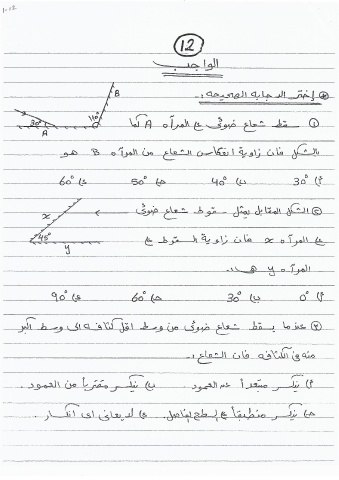 1-12
12
الواجب
اختر الاجابه الصحيحه :-
① سقط شعاع ضوئى على المرآه A كما
بالشكل فان زاوية انعكاس الشعاع من المرآه B هو
أ) 30° ب) 40° ج) 50° د) 60°
30° A 110° B
② الشكل المقابل يمثل سقوط شعاع ضوئى
على المرآه x فان زاوية السقوط على
المرآه y هى ..
أ) 0° ب) 30° ج) 60° د) 90°
x 45° y
③ عندما يسقط شعاع ضوئى من وسط اقل كثافه الى وسط اكبر
منه فى الكثافه فان الشعاع :-
أ) ينكسر مبتعداً عن العمود ب) ينكسر مقترباً من العمود .
ج) ينكسر منطبقاً على السطح الفاصل . د) لا يعانى اى انكسار .